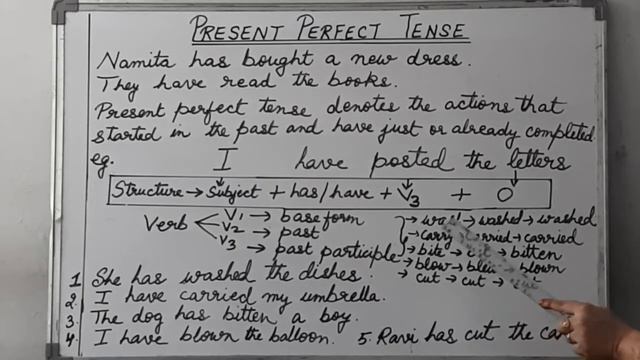 PRESENT PERFECT TENSE
Namita has bought a new dress.
They have read the books.
Present perfect tense denotes the actions that
started in the past and have just or already completed.
eg. I have posted the letters
Structure → Subject + has/have + V3 + O
Verb V1 → base form
V2 → past
V3 → past participle
→ wash → washed → washed
→ carry → carried → carried
→ bite → bit → bitten
→ blow → blew → blown
→ cut → cut → cut
1 She has washed the dishes.
2. I have carried my umbrella.
3. The dog has bitten a boy.
4. I have blown the balloon. 5. Ravi has cut the